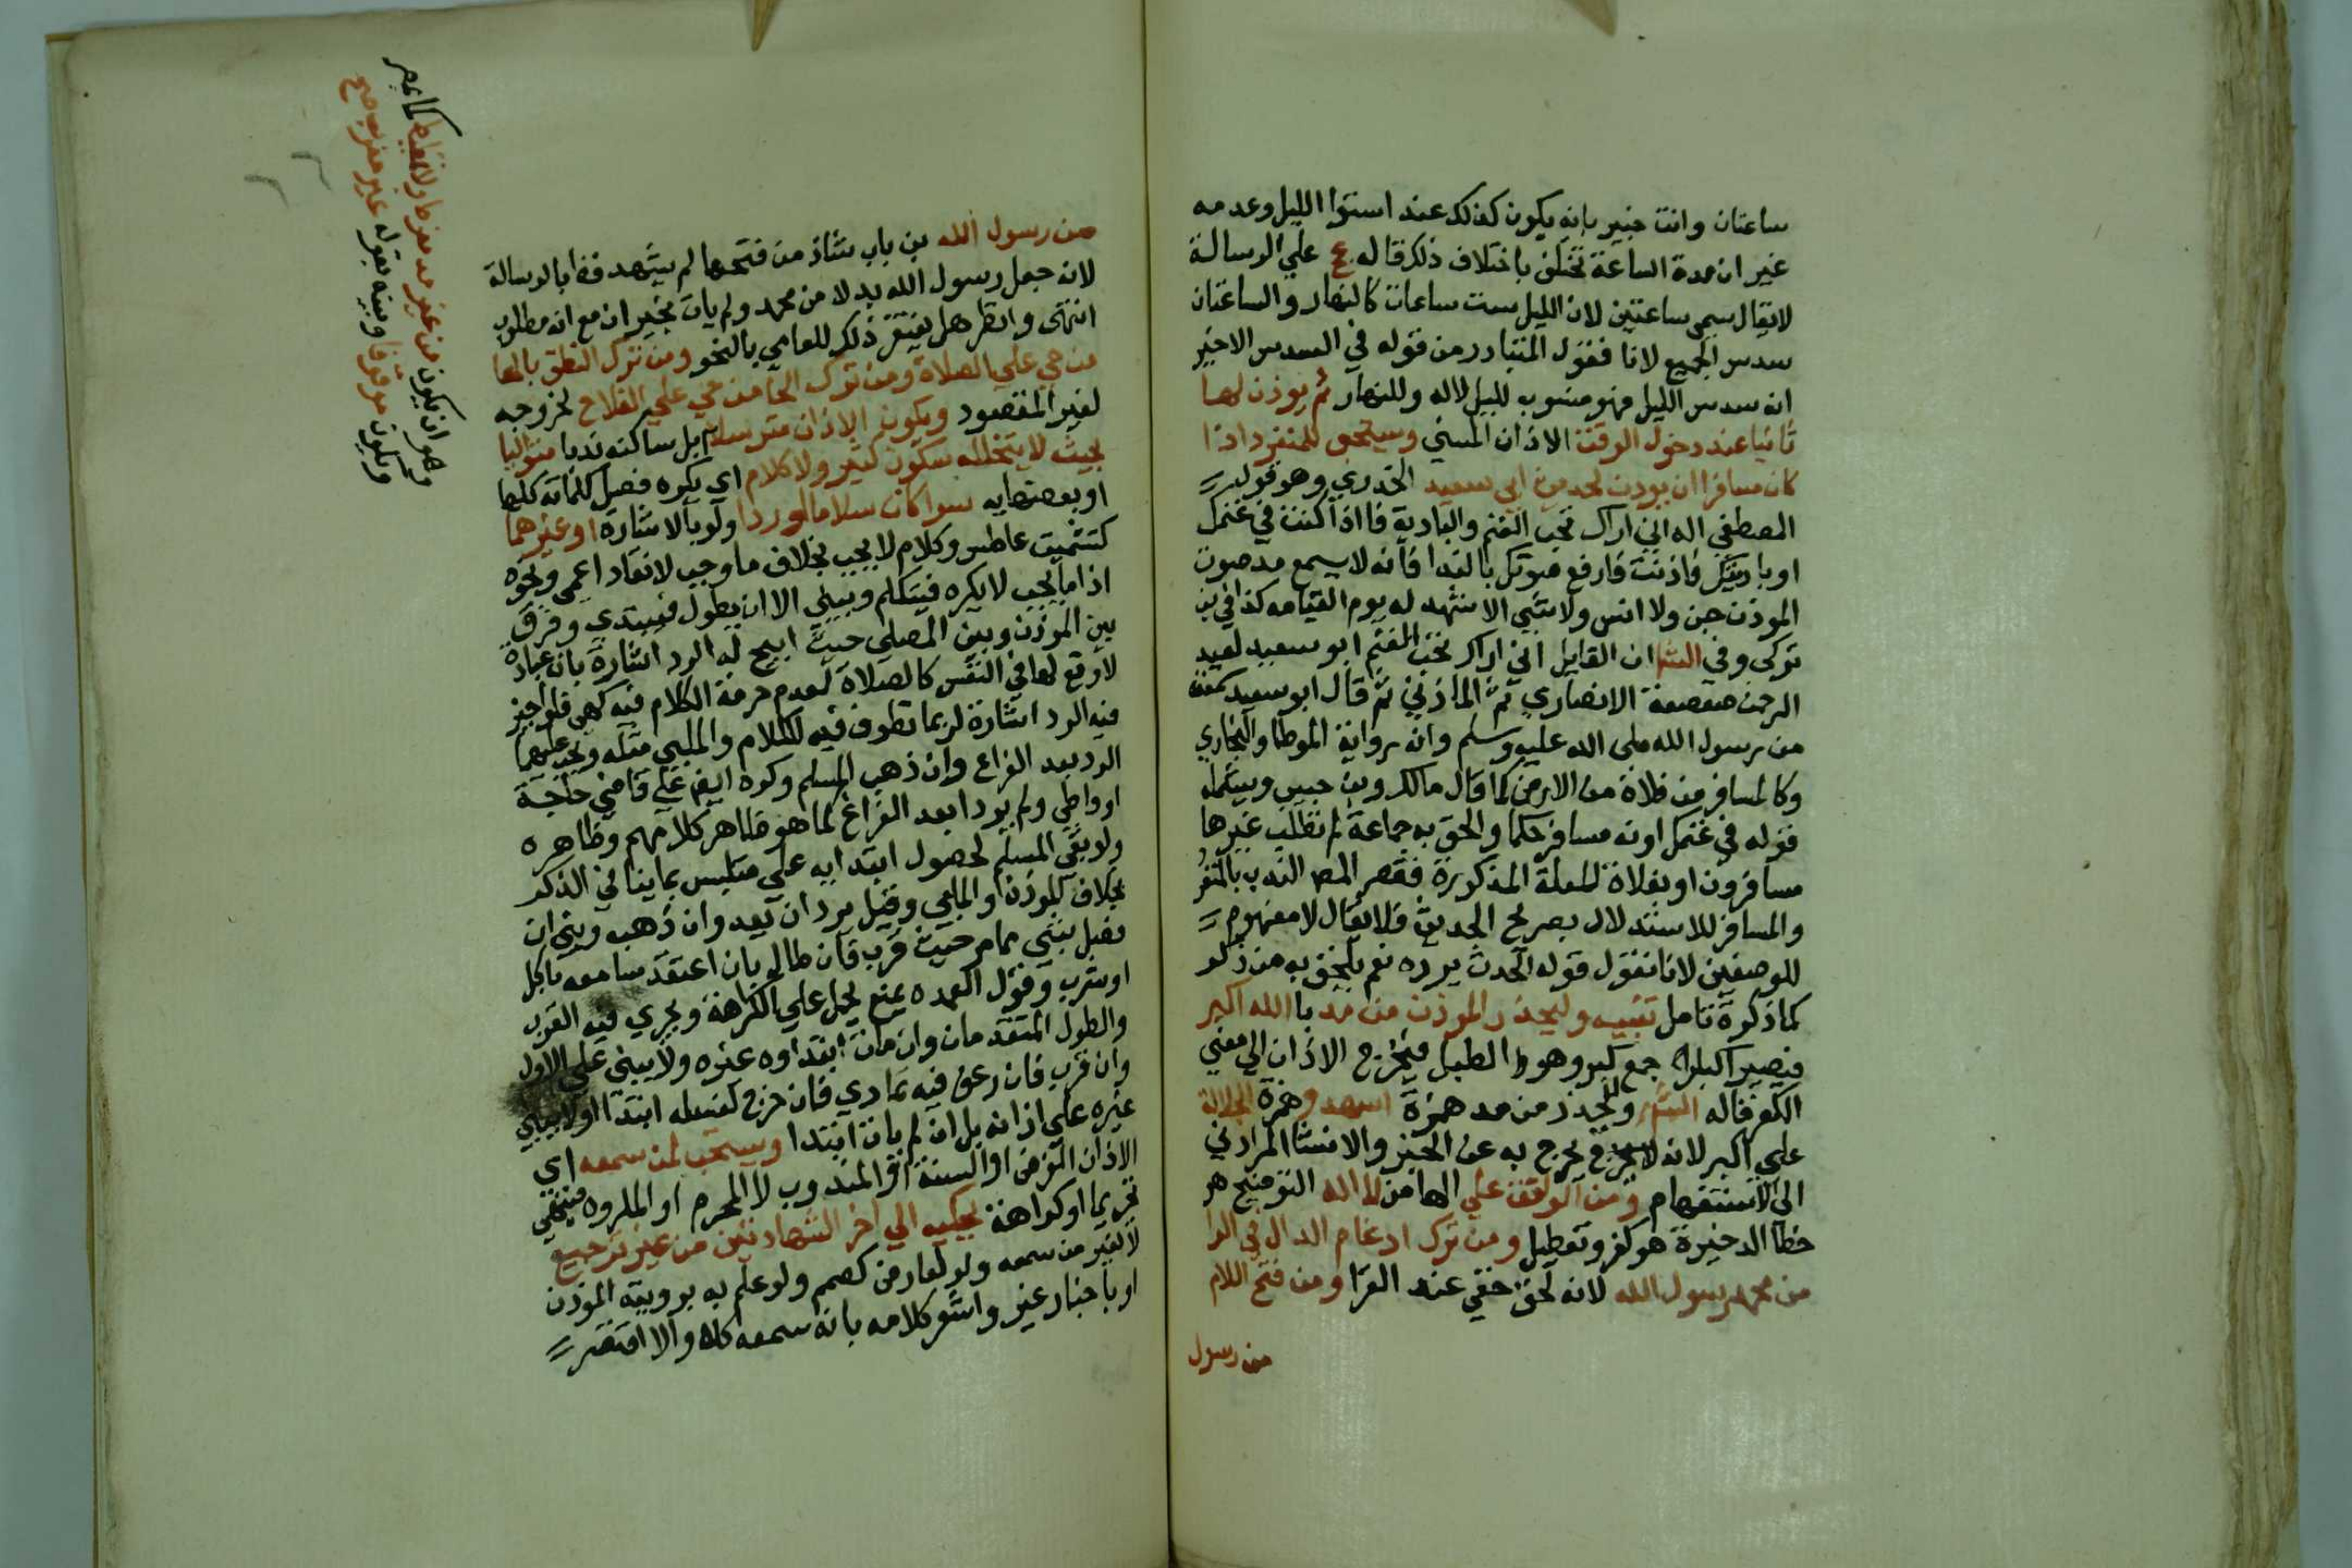 ساعتان وانت خبير بانه يكون كذلك عند استوا الليل وعدمه
غير ان مدة الساعة تختلف باختلاف ذلك قاله عج علي الرسالة
لايقال سمي ساعتين لان الليل ست ساعات كالنهار والساعتان
سدس الجميع لانا فنقول المتبادر من قوله في السدس الاخير
انه سدس الليل فهو منسوب لليل لاله وللنهار ثم يوذن لها
ثانيا عند دخول الوقت الاذان المسني ويستحب للمنفرد اذا
كان مسافرا ان يوذن لحديث ابي سعيد الخدري وهو قول
المصطفي اله اني اراك تحب الغنم والبادية فااذا كنت في غنمك
او باديتك فاذنت فارفع صوتك بالندا فانه لا يسمع مد صوت
الموذن جن ولا انس ولا شي الا شهد له يوم القيامه كذا في بن
تركي وفي الشا ان القايل اني اراك تحب الغنم ابو سعيد لعبد
الرحمن صعصعة الانصاري ثم المازني ثم قال ابو سعيد سمعته
من رسول الله صلي الله عليه وسلم وانه رواية الموطا والبخاري
وكالمسافر من فلاة من الارض كما قال مالك وبن حبيب ويشمله
قوله في غنمك اونه مسافر حكما والحق به جماعة لم تطلب غيرها
مسافرون او بفلاة للعلة المذكورة فقصر المص الندب بالمنفرد
والمسافر للاستدلال بصريح الحديث فلا يقال لا مفهوم
للوصفين لانا نقول قوله الحدث يرده نعم يلحق به من ذكر
كما ذكرة تامل تنبيه وليحذر الموذن من مد با الله اكبر
فيصير اكبارا جمع كبر وهو الطبل فيخرج الاذان الي معني
الكفر قاله الشا وليحذر من مد همزة اشهد وهمزة الجلالة
علي اكبر لانه يخرج به عن الخبر والانشا المراد في
الي الاستفهام ومن الوقف علي الها من لا اله التوضيح هو
خطا الذخيرة هو كفر وتعطيل ومن ترك ادغام الدال في الرا
من محمد رسول الله لانه لحن خفي عند القرا ومن فتح اللام
من رسول
من رسول الله بن باب شاذ من فتحها لم يشهد فظ ابالرسالة
لانه جعل رسول الله بدلا من محمد ولم يات بخبر ان مع انه مطلوب
انتهى وانظر هل يغتفر ذلك للعامي بالنحو ومن ترك النطق بالها
من حي علي الصلاة ومن ترك الحا من حي علي الفلاح لخروجه
لغير المقصود ويكون الاذان مترسلا بل ساكنه ندبا متواليا
بحيث لا يتخلله سكون كثير ولا كلام اي يكره فصل كلماته كلها
او بعضها به سوا كان سلاما او ردا ولو بالاشارة او غيرهما
كتشميت عاطس وكلام لا يجب بخلاف ما وجب لانقاد اعمي ونحوه
اذ ما يجب لا يكره فيتكلم ويبني الا ان يطول فيبتدي وفرق
بين الموذن وبين المصلي حيث ابيح له الرد اشارة بان عبادة
لا وقع لها في النفس كالصلاة لعدم حرمة الكلام فيه كهي فلو اجيز
فيه الرد اشارة لربما تطرق فيه للكلام والملبي مثله ويجب عليهما
الرد بعد الفراغ وان ذهب المسلم وكره ايض علي قاضي حاجة
او واطي ولم يردا بعد الفراغ كما هو ظاهر كلامهم وظاهره
ولو بقي المسلم لحصول ابتدايه علي متلبس بما ينافي الذكر
بخلاف الموذن او الملبي وقيل يرد ان بعد وان ذهب ويبني ان
فصل بشي مما مر حيث قرب فان طال بان اعتقد سامعه
او شرب وقول العمده يمنع يحمل علي الكراهة ويجري فيه القرب
والطول المتقدمان وان مات ابتداوه غيره ولا يبني علي الاول
وان قرب فان رعف فيه تمادي فان خرج لغسله ابتدا اولا يبني
غيره علي اذانه بل ان لم يات ابتدا ويستحب لمن سمعه اي
الاذان الفرض او السنة او المندوب لا المحرم او المكروه فينتفي
تحريما او كراهة يحكيه الي اخر الشهادتين من غير ترجيع
لا لغير من سمعه ولو لعارض كصمم ولو علم به برويته الموذن
او باخبار غير واشعر كلامه بانه سمعه كله والا اقتصر
وهو ان يكون من غير مد مفرط ولا تمطيط كما يجر
ويكون موقوفا وبينه بقوله غير معرب صح